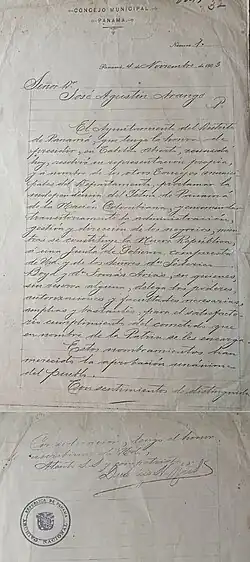 CONCEJO MUNICIPAL
PANAMA
Panamá, 4 de Noviembre de 1903
Señor D.
José Agustín Arango
P.
El Ayuntamiento del Distrito
de Panamá, que tengo la honra de
presentar, en Cabildo abierto, reunido
hoy, resolvió en representación propia,
y a nombre de los otros Concejos municipales
del Departamento, proclamar la
independencia del Istmo de Panamá
de la Nación Colombiana, y encomendar
transitoriamente la administración,
gestión y dirección de los negocios, mientras
se constituye la Nueva República,
a una Junta de Gobierno, compuesta
de Ud. y de los Señores Federico
Boyd y Tomás Arias, en quienes
sin reserva alguna, delega los poderes,
autorizaciones y facultades necesarias,
amplias y bastantes, para el satisfactorio
cumplimiento del cometido que
en nombre de la Patria se les encarga.
Estos nombramientos han
merecido la aprobación unánime
del pueblo.
Con sentimientos de distinguida
consideración, tengo el honor
suscribirme de Ud.
Atento S.S. y compatriota
REPUBLICA DE PANAMA